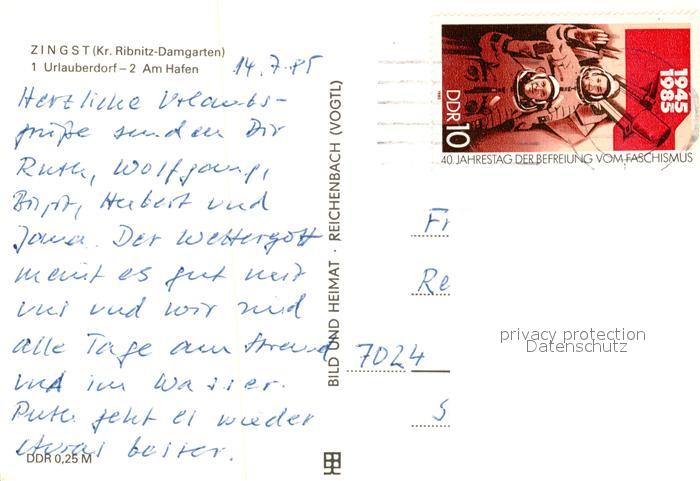 ZINGST (Kr. Ribnitz-Damgarten)
1 Urlauberdorf – 2 Am Hafen
14.7.85
Herzliche Urlaubs-
grüße senden Dir
Ruth, Wolfgang,
Birgit, Hubert und
Jana. Der Wettergott
meint es gut mit
uns und wir sind
alle Tage am Strand
und im Wasser.
Ruth geht es wieder
etwas besser.
DDR 0,25 M
BILD UND HEIMAT · REICHENBACH (VOGTL)
1945
1985
DDR 10
40. JAHRESTAG DER BEFREIUNG VOM FASCHISMUS
Fr
Re
7024
S
privacy protection
Datenschutz